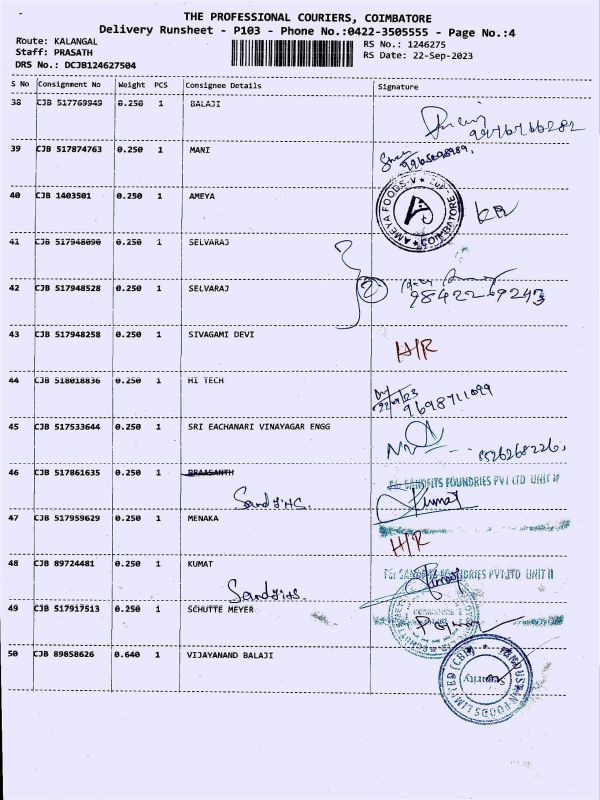 THE PROFESSIONAL COURIERS, COIMBATORE
Delivery Runsheet - P103 - Phone No.:0422-3505555 - Page No.:4
Route: KALANGAL
Staff: PRASATH
DRS No.: DCJB124627504
RS No.: 1246275
RS Date: 22-Sep-2023
S No Consignment No Weight PCS Consignee Details Signature
38 CJB 517769949 0.250 1 BALAJI
39 CJB 517874763 0.250 1 MANI
9965898989.
40 CJB 1403501 0.250 1 AMEYA
AMEYA FOODS COIMBATORE
41 CJB 517948090 0.250 1 SELVARAJ
42 CJB 517948528 0.250 1 SELVARAJ
2
98422-9243
43 CJB 517948258 0.250 1 SIVAGAMI DEVI
H/R
44 CJB 518018836 0.250 1 HI TECH
22/09/23
9698711099
45 CJB 517533644 0.250 1 SRI EACHANARI VINAYAGAR ENGG
46 CJB 517861635 0.250 1 PRAASANTH
SANDFITS FOUNDRIES PVT LTD UNIT II
Sandfits.
Kumar
47 CJB 517959629 0.250 1 MENAKA
H/R
48 CJB 89724481 0.250 1 KUMAT
PSG SANDFITS FOUNDRIES PVT.LTD UNIT II
Sandfits.
49 CJB 517917513 0.250 1 SCHUTTE MEYER
50 CJB 89858626 0.640 1 VIJAYANAND BALAJI
HINDUSTAN FOODS LIMITED (CBE)
Security